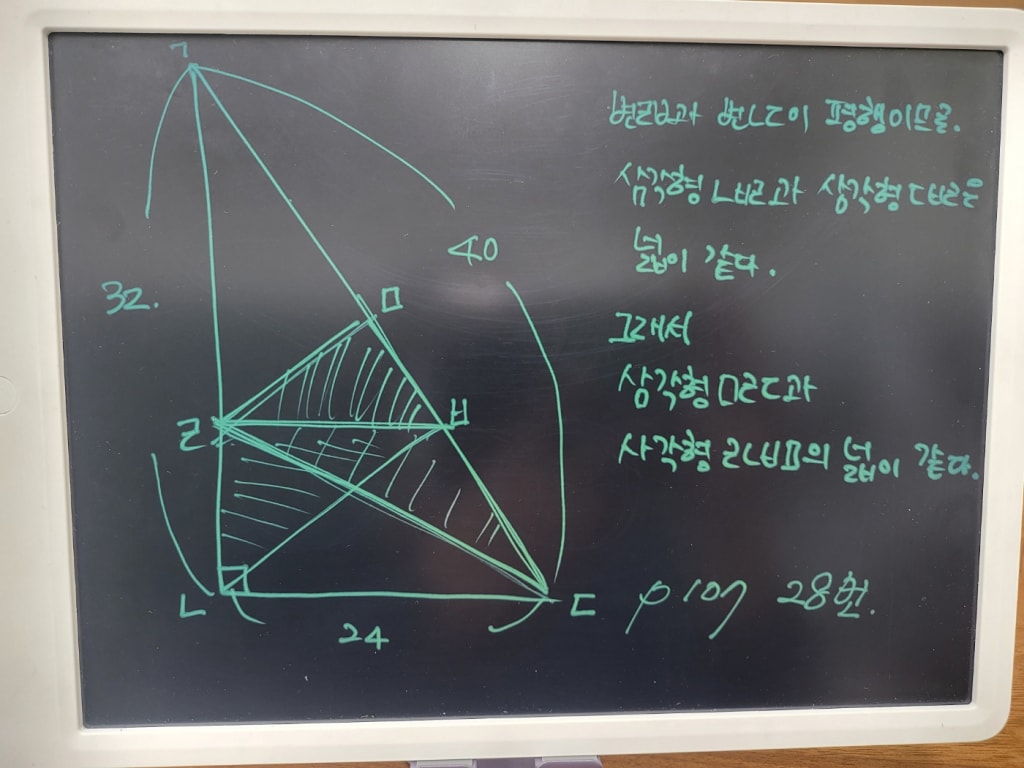 ㄱ
변ㄹㅂ과 변ㄴㄷ이 평행이므로.
삼각형 ㄴㅂㄹ과 삼각형 ㄷㅂㄹ은
넓이 같다.
40
ㅁ
32.
그래서
삼각형 ㅁㄹㄷ과
ㄹ
ㅂ
사각형 ㄹㄴㅂㅁ의 넓이 같다.
ㄴ
ㄷ
p 107 28번.
24